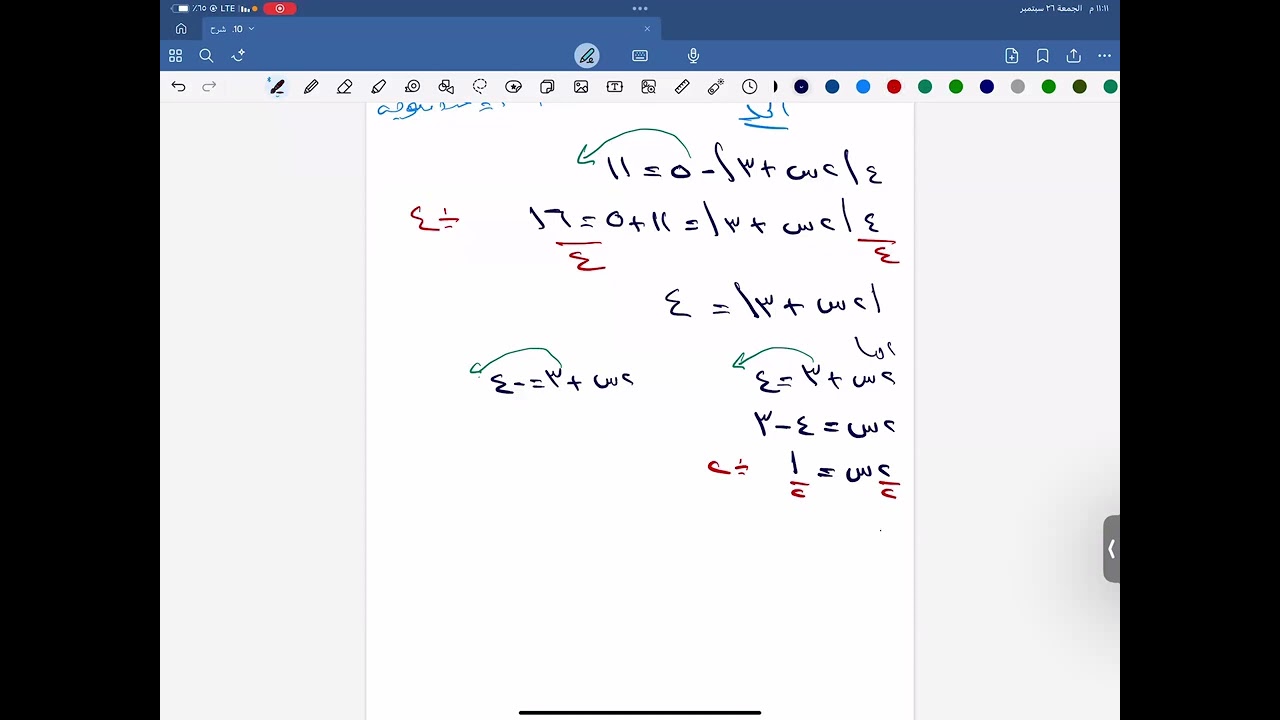 ١١:١١ م الجمعة ٢٦ سبتمبر
٦٥٪ LTE
10. شرح
الحل
٤|٢س+٣|-٥=١١
٤|٢س+٣|=١١+٥=١٦ ÷٤
٤ ٤
|٢س+٣|=٤
اما
٢س+٣=٤ ٢س+٣=-٤
٢س=٤-٣
٢س=١ ÷٢
٢ ٢